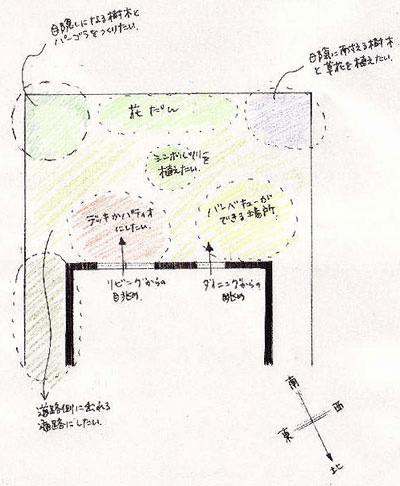 目隠しになる樹木と
パーゴラをつくりたい.
日陰に耐える樹木
と草花を植えたい.
花だん
シンボルツリーを
植えたい.
デッキかパティオ
にしたい.
バーベキューが
できる場所.
リビングからの
眺め
ダイニングからの
眺め
道路側に出れる
通路にしたい.
南
東
西
北